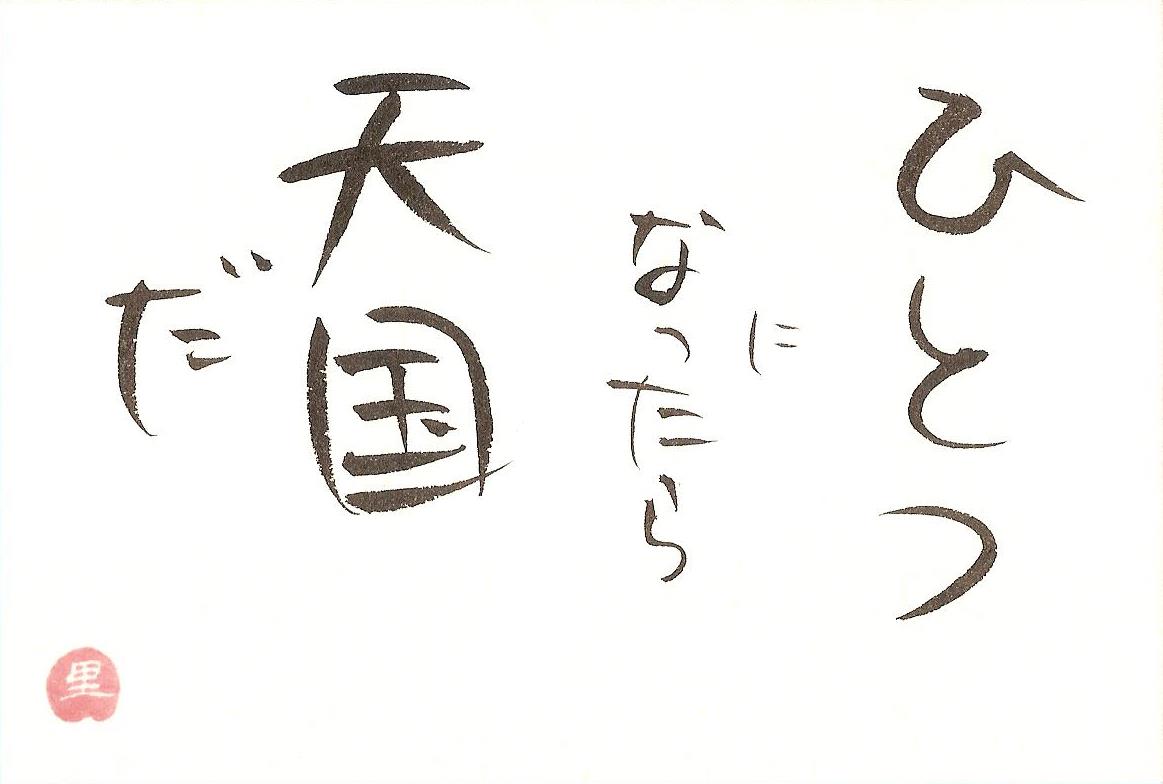 ひとつ
に
なったら
天国
だ
里